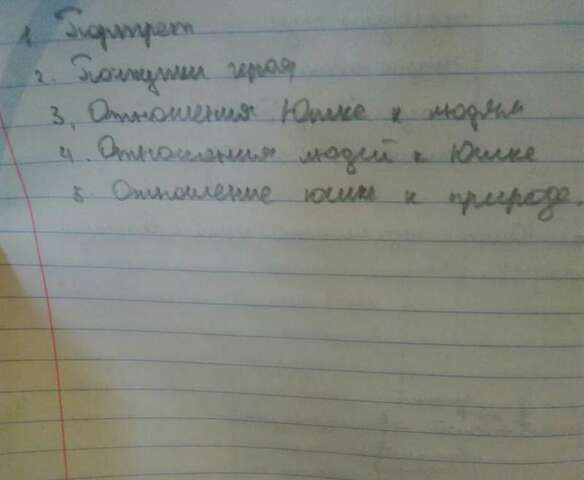 1 Портрет
2. Поступки героя
3. Отношения Юшке к людям
4. Отношения людей к Юшке
5 Отношение юшки к природе.